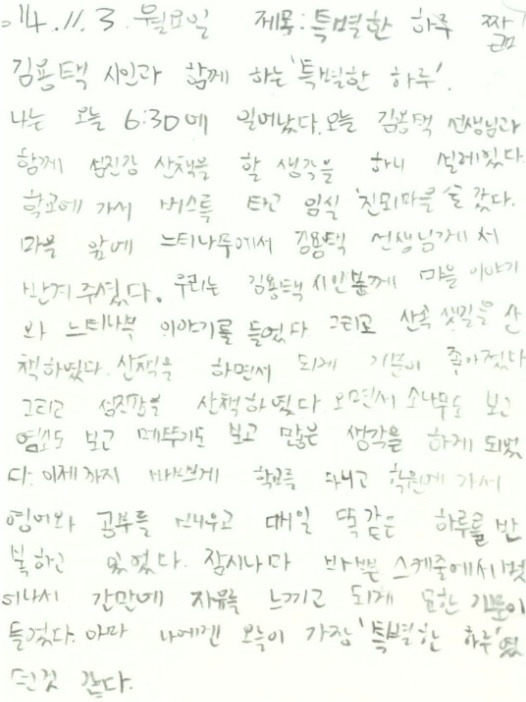 014.11.3 월요일 제목: 특별한 하루
김용택 시인과 함께 하는 '특별한 하루'.
나는 오늘 6:30에 일어났다. 오늘 김용택 선생님과
함께 섬진강 산책을 할 생각을 하니 설레있다.
학교에 가서 버스를 타고 임실 '진뫼마을'을 갔다.
마을 앞에 느티나무에서 김용택 선생님께서
반겨주셨다. 우리는 김용택 시인분께 마을 이야기
와 느티나무 이야기를 들었다 그리고 산속 샛길을 산
책하였다. 산책을 하면서 되게 기분이 좋아졌다
그리고 섬진강을 산책하였다 오면서 소나무도 보고
염소도 보고 메뚜기도 보고 많은 생각을 하게 되었
다. 이제까지 바쁘게 학교를 다니고 학원에 가서
영어와 공부를 배우고 매일 똑같은 하루를 반
복하고 있었다. 잠시나마 바쁜 스케줄에서 벗
어나서 간만에 자유를 느끼고 되게 묘한 기분이
들었다. 아마 나에겐 오늘이 가장 '특별한 하루'였
던것 같다.